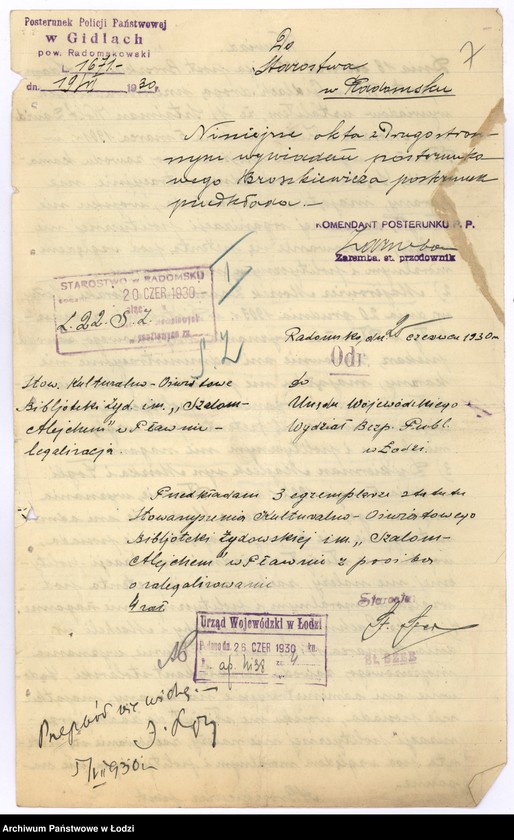 Posterunek Policji Państwowej
w Gidlach
pow. Radomskowski
L. 1671.-
dn. 19/VI 1930.
7
Do
Starostwa
w Radomsku
Niniejsze akta z drugostron-
nym wywiadem posterunko-
wego Broszkiewicza posterunek
przedkłada.-
KOMENDANT POSTERUNKU P.P.
Zaremba
Zaremba, st. przodownik
STAROSTWO w RADOMSKU
20 CZER 1930
L. 22. S. 2
Radomsko, dn. 25 czerwca 1930 r.
Odr
Stow. Kulturalno-Oświatowe
Bibljoteki Żyd. im. „Szalom-
Alejchem" w Pławnie -
legalizacja.
do
Urzędu Wojewódzkiego
Wydział Bezp. Publ.
w Łodzi.
Przedkładam 3 egzemplarze statutu
Stowarzyszenia Kulturalno-Oświatowego
Bibljoteki Żydowskiej im. „Szalom-
Alejchem" w Pławnie z prośbą
o zalegalizowanie
4 zał
Starosta
Urząd Wojewódzki w Łodzi
Podano dn. 26 CZER 1930
zał. 4
Przeszkód nie widzę.-
5/VII 930 r.
Archiwum Państwowe w Łodzi